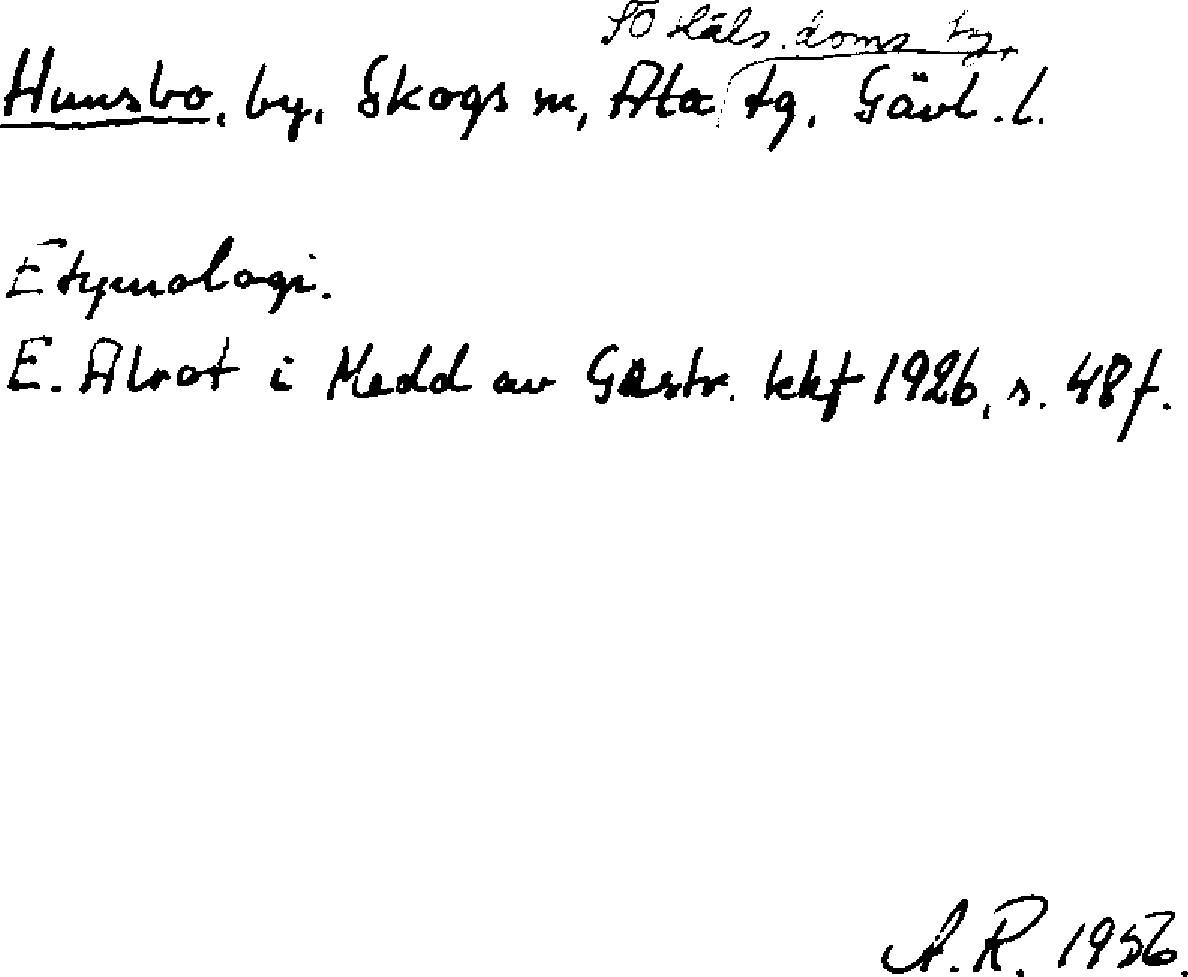 SÖ Häls. doms tg.
Hunsbo, by, Skogs sn, Ala tg, Gävl. l.
Etymologi.
E. Alrot i Medd av Gästr. kkf 1926, s. 48 f.
A. R. 1956.